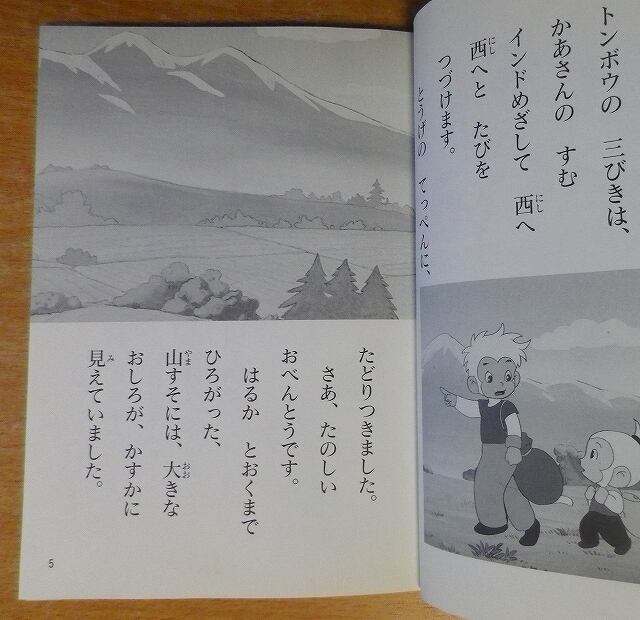 トンボウの　三びきは、
かあさんの　すむ
インドめざして　西へ
にし
西へと　たびを
にし
つづけます。
とうげの　てっぺんに、
たどりつきました。
さあ、たのしい
おべんとうです。
はるか　とおくまで
ひろがった、
山すそには、大きな
やま
おお
おしろが、かすかに
見えていました。
み
5